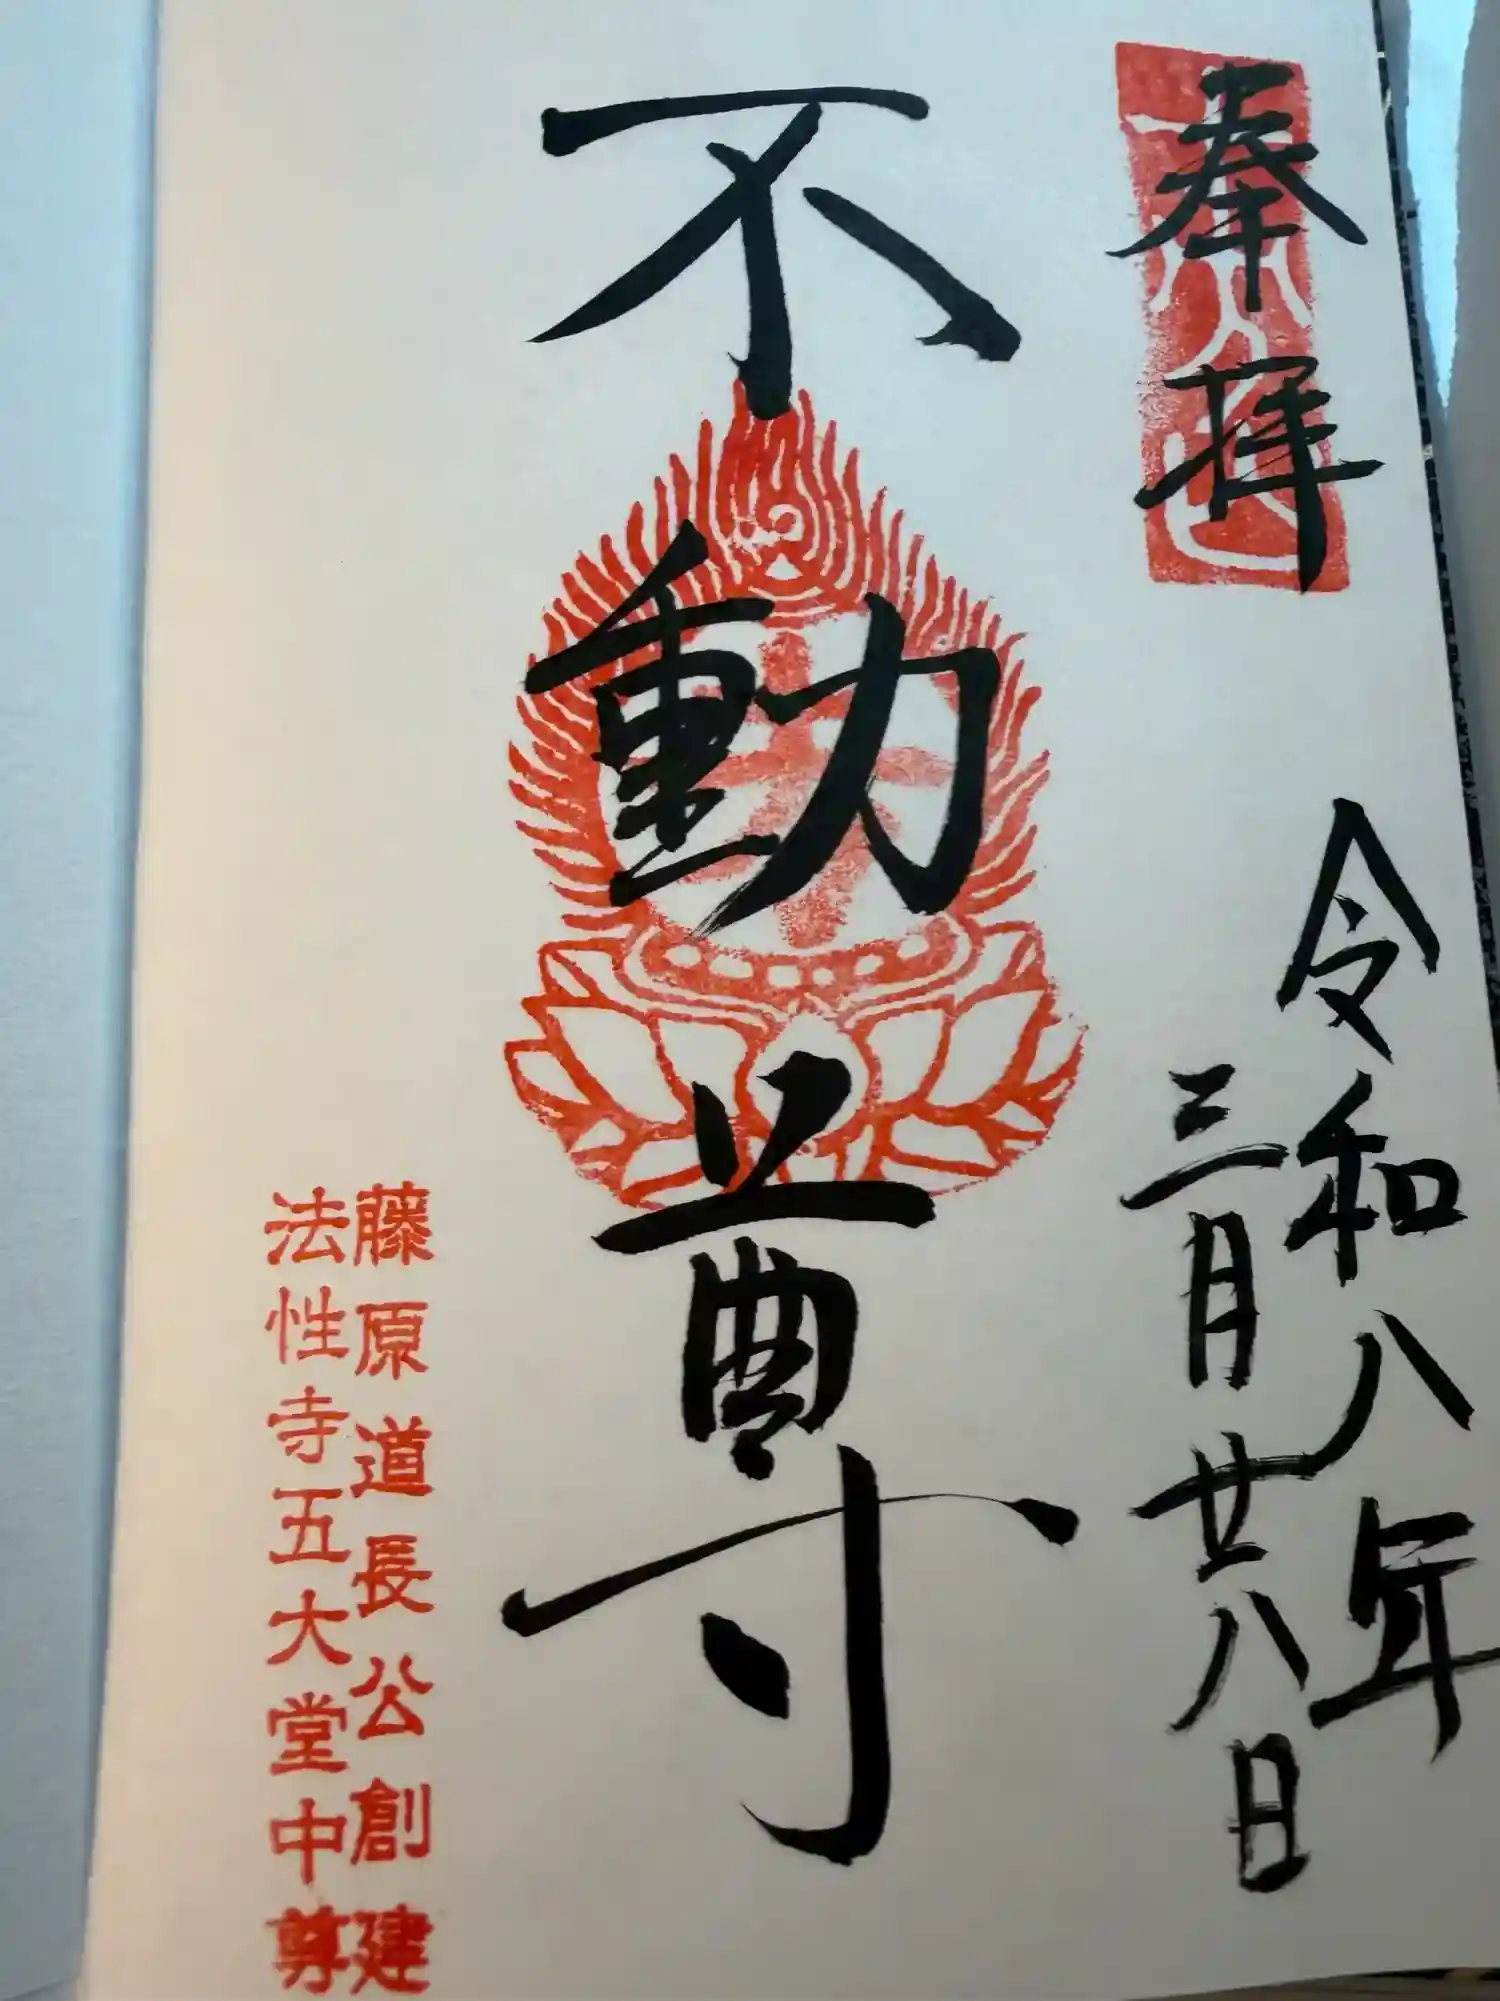 奉拝
令和八年
三月廿八日
不動尊
藤原道長公創建
法性寺五大堂中尊